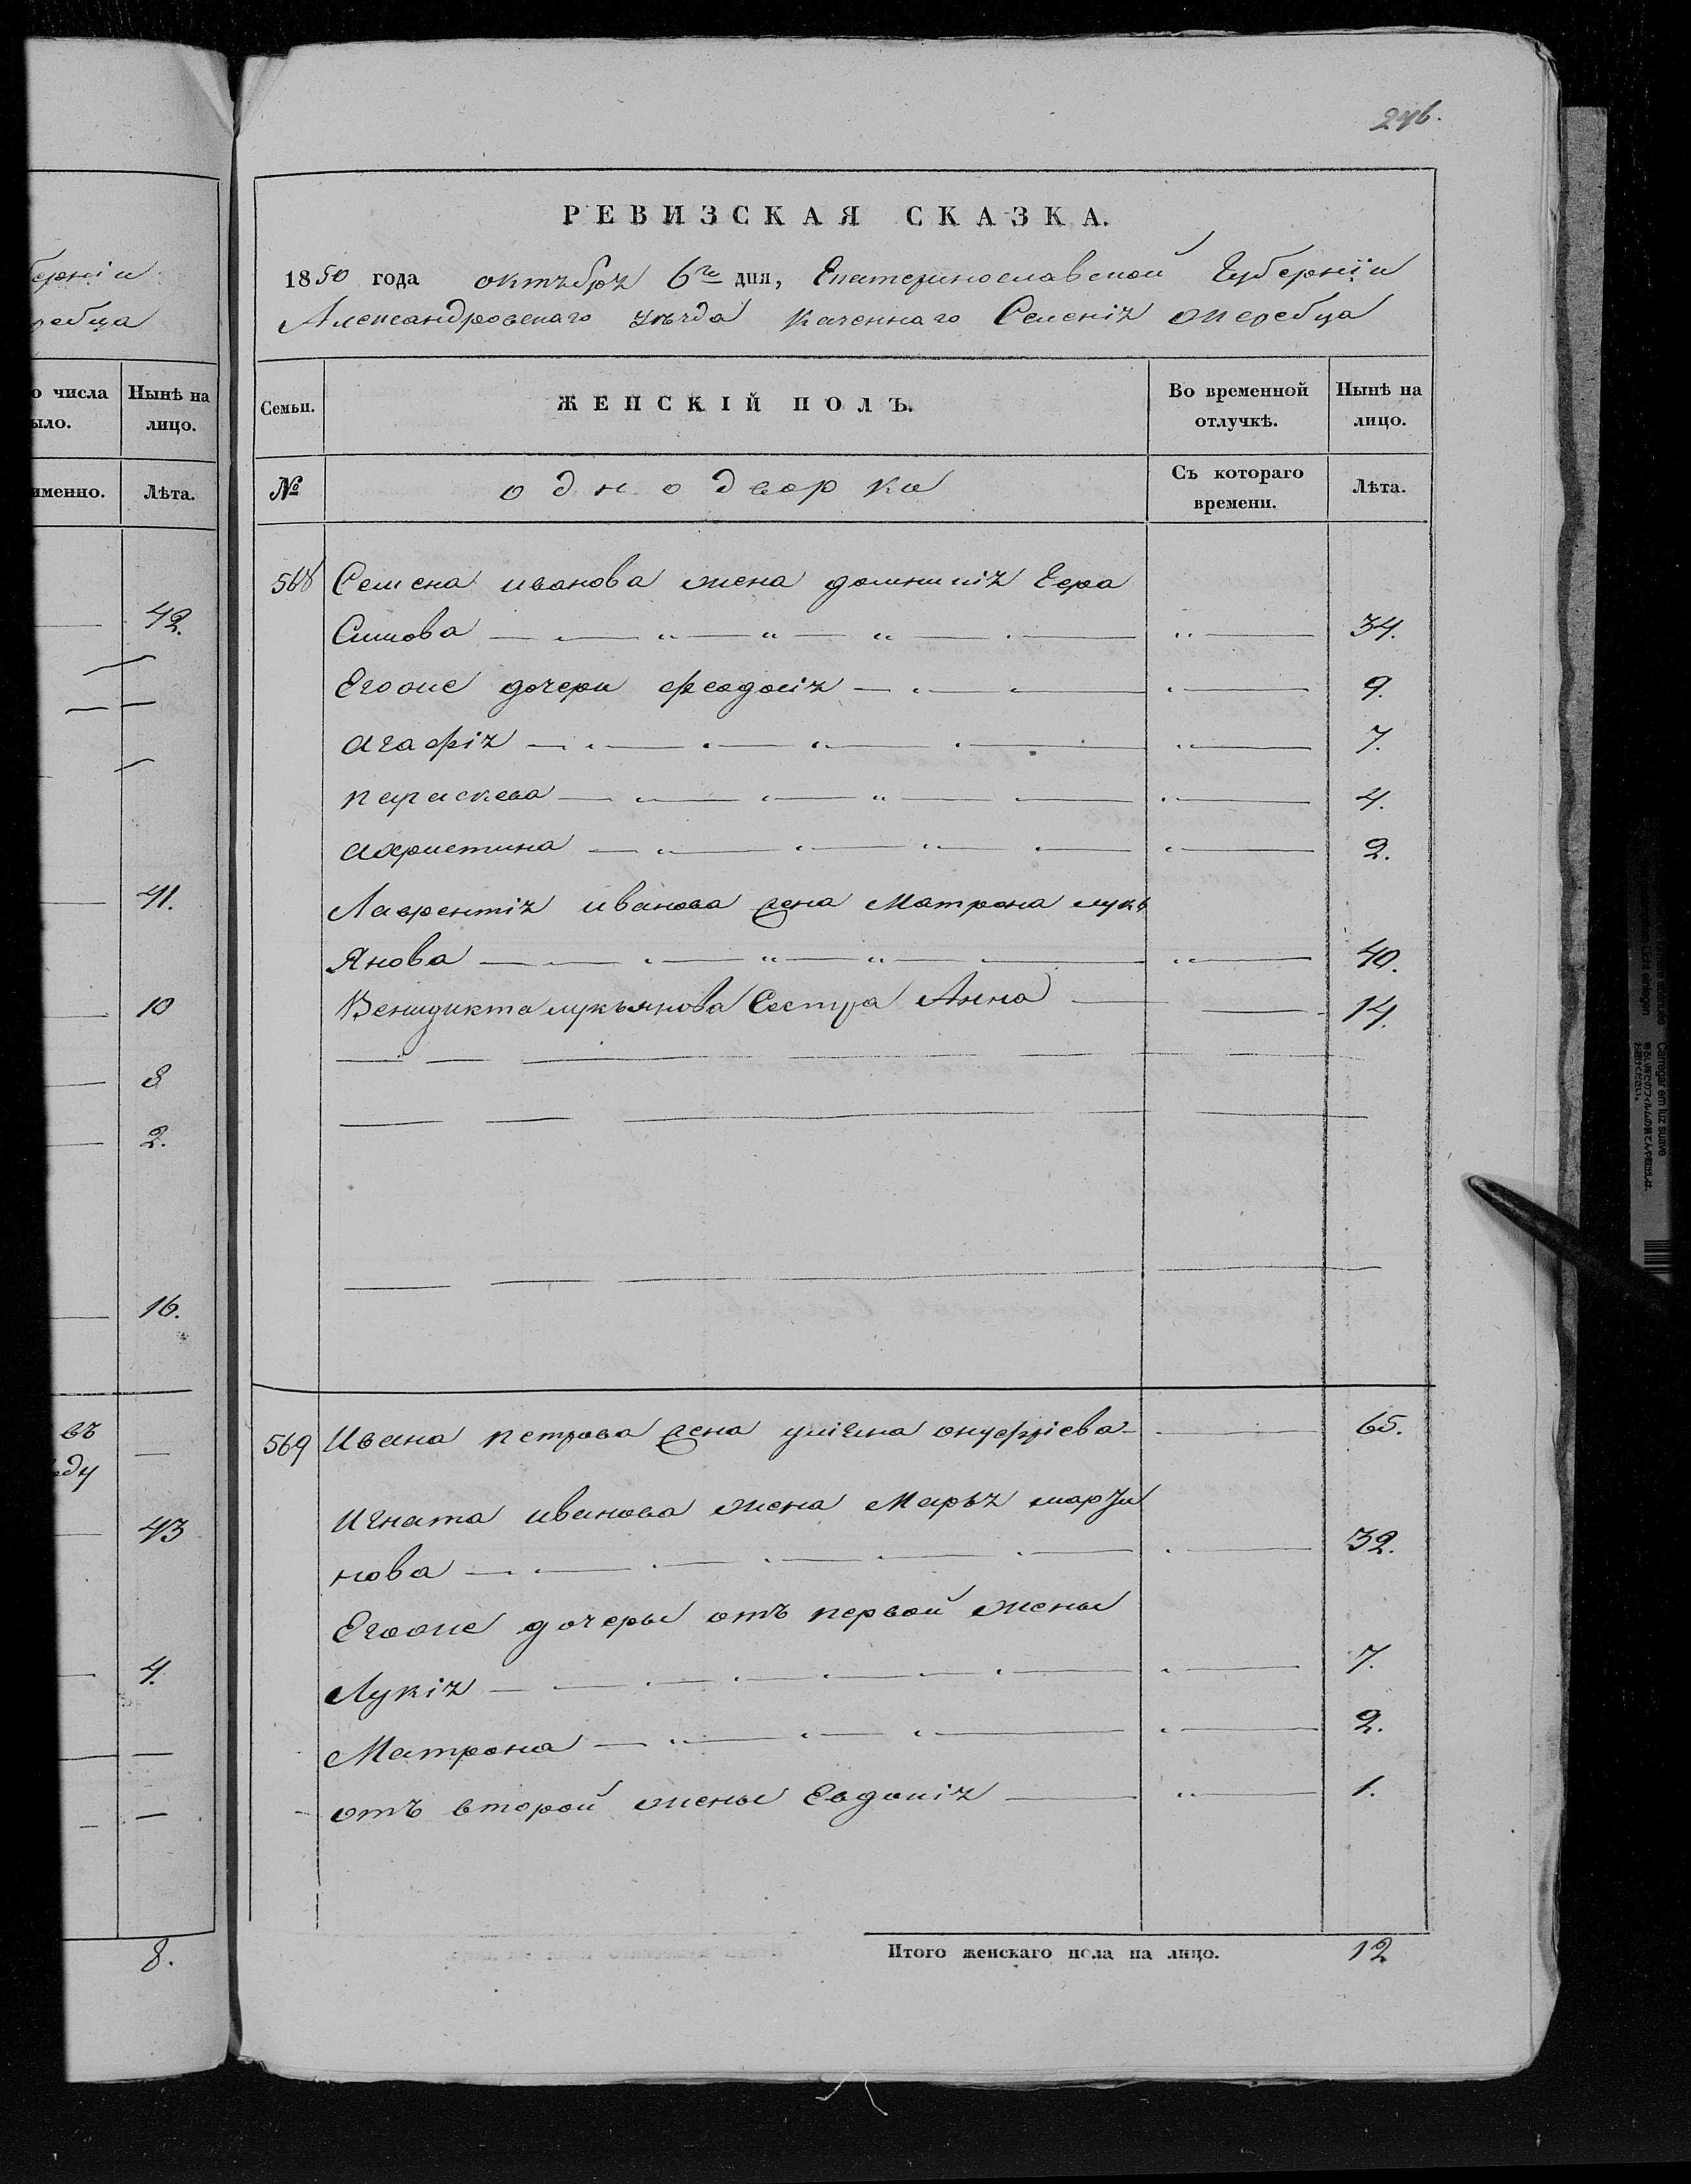 ерніи
ребца
о числа
Нынѣ на
ыло.
лицо.
именно.
Лѣта.
42.
41.
10
8
2.
16.
въ
ду
43
4.
8.
246.
РЕВИЗСКАЯ СКАЗКА.
1850 года октября 6го дня, Екатеринославской Губерніи
Александровскаго уѣзда казеннаго Селенія жеребца
Семьи.
ЖЕНСКІЙ ПОЛЪ.
Во временной отлучкѣ.
Нынѣ на лицо.
№
однодворки
Съ котораго времени.
Лѣта.
568 Семена иванова жена домникія Гера
Симова 34.
Егоже дочери феодосія 9.
агафія 7.
параскева 4.
ахристина 2.
Лаврентія иванова жена Матрона лукь
Янова 40.
Венидикта лукьянова Сестра Анна 14.
569 Ивана петрова жена уліяна онуфріева 65.
Игната иванова жена Марья марты
нова 32.
Егоже дочеры отъ первой жены
Лукія 7.
Матрона 2.
отъ второй жены Евдокія 1.
Итого женскаго пола на лицо. 12